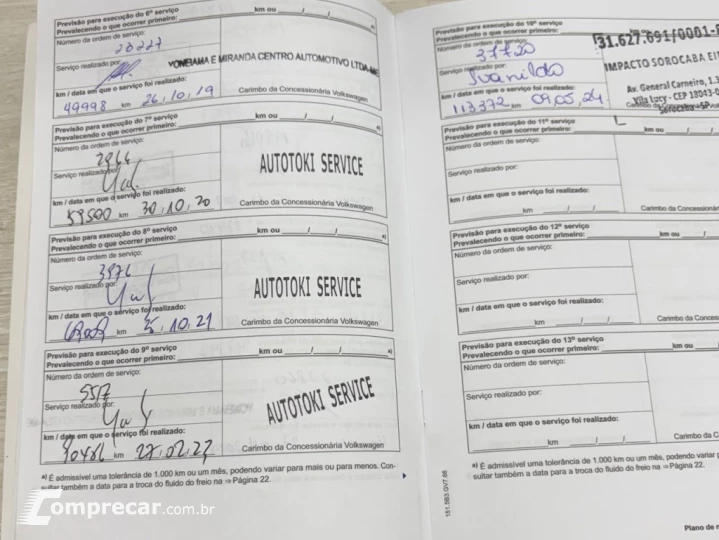 Previsão para execução do 6º serviço
Prevalecendo o que ocorrer primeiro: km ou / / a)
Número da ordem de serviço:
20227
Serviço realizado por:
YONEHAMA E MIRANDA CENTRO AUTOMOTIVO LTDA-ME
km / data em que o serviço foi realizado:
49998 km 26, 10, 19
Carimbo da Concessionária Volkswagen
Previsão para execução do 7º serviço
Prevalecendo o que ocorrer primeiro: km ou / / a)
Número da ordem de serviço:
2964
Serviço realizado por:
AUTOTOKI SERVICE
km / data em que o serviço foi realizado:
59500 km 30, 10, 20
Carimbo da Concessionária Volkswagen
Previsão para execução do 8º serviço
Prevalecendo o que ocorrer primeiro: km ou / / a)
Número da ordem de serviço:
3976
Serviço realizado por:
AUTOTOKI SERVICE
km / data em que o serviço foi realizado:
km 5, 10, 21
Carimbo da Concessionária Volkswagen
Previsão para execução do 9º serviço
Prevalecendo o que ocorrer primeiro: km ou / / a)
Número da ordem de serviço:
5517
Serviço realizado por:
AUTOTOKI SERVICE
km / data em que o serviço foi realizado:
90486 km 27, 02, 23
Carimbo da Concessionária Volkswagen
a) É admissível uma tolerância de 1.000 km ou um mês, podendo variar para mais ou para menos. Con-
sultar também a data para a troca do fluido do freio na ⇒ Página 22.
Comprecar.com.br
Previsão para execução do 10º serviço
Prevalecendo o que ocorrer primeiro:
Número da ordem de serviço:
37720
31.627.691/0001-
Serviço realizado por:
Ivanildo
IMPACTO SOROCABA EI
Av. General Carneiro, 1.3
Vila Lucy - CEP 18043-0
Sorocaba-SP
km / data em que o serviço foi realizado:
113372 km 09, 05, 24
Previsão para execução do 11º serviço
Prevalecendo o que ocorrer primeiro: km ou / /
Número da ordem de serviço:
Serviço realizado por:
km / data em que o serviço foi realizado:
km / /
Carimbo da Concessionár
Previsão para execução do 12º serviço
Prevalecendo o que ocorrer primeiro: km ou /
Número da ordem de serviço:
Serviço realizado por:
km / data em que o serviço foi realizado:
km / /
Carimbo da Concess
Previsão para execução do 13º serviço
Prevalecendo o que ocorrer primeiro: km ou
Número da ordem de serviço:
Serviço realizado por:
km / data em que o serviço foi realizado:
km / /
Carimbo da C
a) É admissível uma tolerância de 1.000 km ou um mês, podendo variar para
sultar também a data para a troca do fluido do freio na ⇒ Página 22.
151.5B3.GV7.66
Plano de m